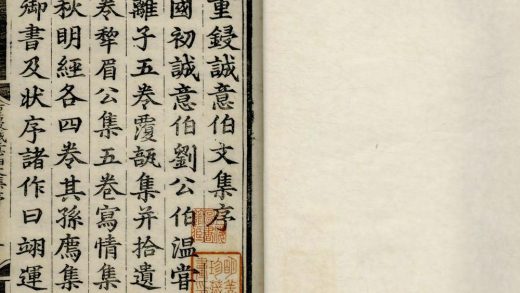 重鋟誠意伯文集序
國初誠意伯劉公伯溫嘗
離子五卷覆瓿集并拾遺
卷犂眉公集五卷寫情集
秋明經各四卷其孫廌集
御書及狀序諸作曰翊運